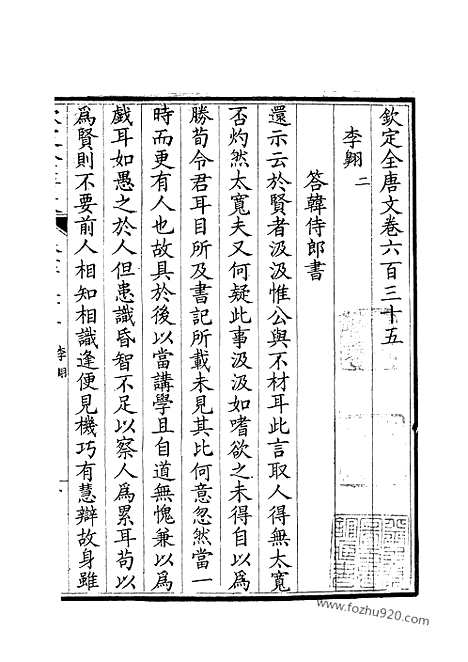 欽定全唐文卷六百三十五
李翺 二
答韓侍郎書
還示云於賢者汲汲惟公與不材耳此言取人得無太寬
否灼然太寬夫又何疑此事汲汲如嗜欲之未得自以爲
勝荀令君耳目所及書記所載未見其比何意忽然當一
時而更有人也故具於後以當講學且自道無愧兼以爲
戲耳如愚之於人但患識昏智不足以察人爲累耳苟以
爲賢則不要前人相知相識逢便見機巧有慧辯故身雖
www.fozhu920.com